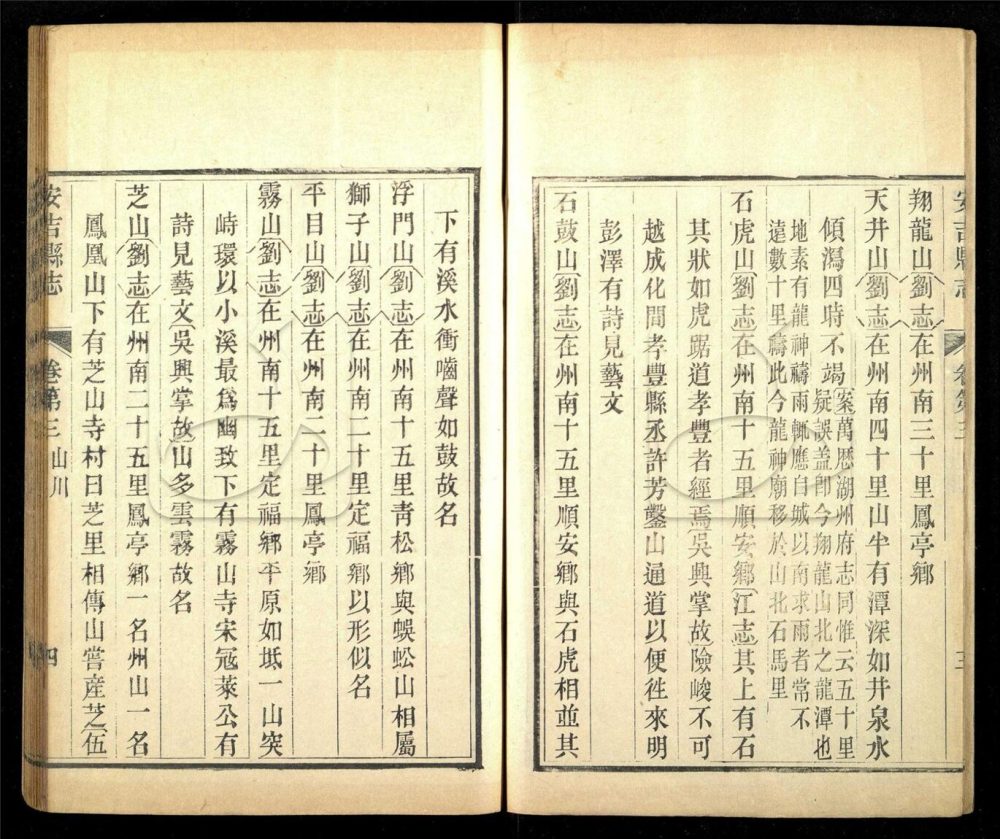 安吉縣志
卷第三
三
翔龍山(劉志)在州南三十里鳳亭鄉
天井山(劉志)在州南四十里山半有潭深如井泉水
傾瀉四時不竭
案萬厯湖州府志同惟云五十里
疑誤盖即今翔龍山北之龍潭也
地素有龍神禱雨輒應自城以南求雨者常不
遠數十里禱此今龍神廟移於山北石馬里
石虎山(劉志)在州南十五里順安鄉(江志)其上有石
其狀如虎踞道孝豐者經焉(吳興掌故)險峻不可
越成化間孝豐縣丞許芳鑿山通道以便徃來明
彭澤有詩見藝文
石鼓山(劉志)在州南十五里順安鄉與石虎相並其
下有溪水衝嚙聲如鼓故名
浮門山(劉志)在州南十五里靑松鄉與蜈蚣山相屬
獅子山(劉志)在州南二十里定福鄉以形似名
平目山(劉志)在州南二十里鳳亭鄉
霧山(劉志)在州南十五里定福鄉平原如坻一山突
峙環以小溪最爲幽致下有霧山寺宋冦萊公有
詩見藝文(吳興掌故)山多雲霧故名
芝山(劉志)在州南二十五里鳳亭鄉一名州山一名
鳳凰山下有芝山寺村曰芝里相傳山嘗産芝(伍
安吉縣志
卷第三
山川
四